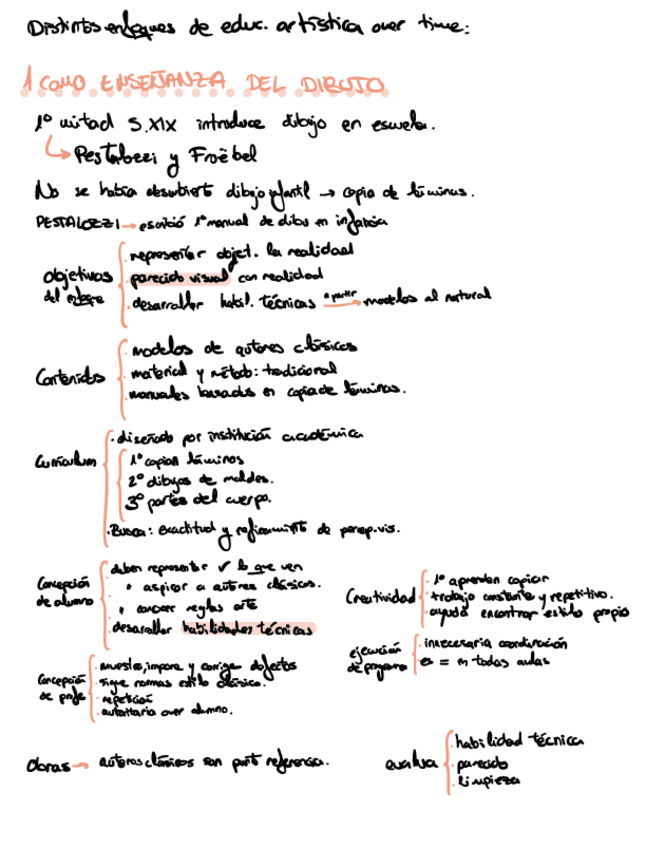 Distintos enfoques de educ. artística over time:
1 COMO ENSEÑANZA DEL DIBUJO
1º mitad S.XIX introduce dibujo en escuela.
↳ Pestalozzi y Froëbel
No se había descubierto dibujo infantil → copia de láminas.
PESTALOZZI → escribió 1º manual de dibu en infancia
Objetivos del enfoque
· representar objet. la realidad
· parecido visual con realidad
· desarrollar habil. técnicas a partir → modelos al natural
Contenidos
· modelos de autores clásicos
· material y métod: tradicional
· manuales basados en copia de láminas.
Currículum
· diseñado por institución académica
1º copian láminas
2º dibujos de moldes.
3º partes del cuerpo.
· Busca: exactitud y refinamiento de percep. vis.
Concepción de alumno
· deben representar ✓ lo que ven
· aspirar a autores clásicos.
· conocer reglas arte
· desarrollar habilidades técnicas
Creatividad
· 1º aprenden copiar
· trabajo constante y repetitivo.
· ayuda encontrar estilo propio
Concepción de profe
· muestra, impone y corrige defectos
· sigue normas estilo clásico.
· repetición
· autoritaria over alumno.
ejecución de programa
· innecesaria coordinación
· es = en todas aulas
Obras → autores clásicos son punto referencia.
evalua
· habilidad técnica
· parecido
· limpieza